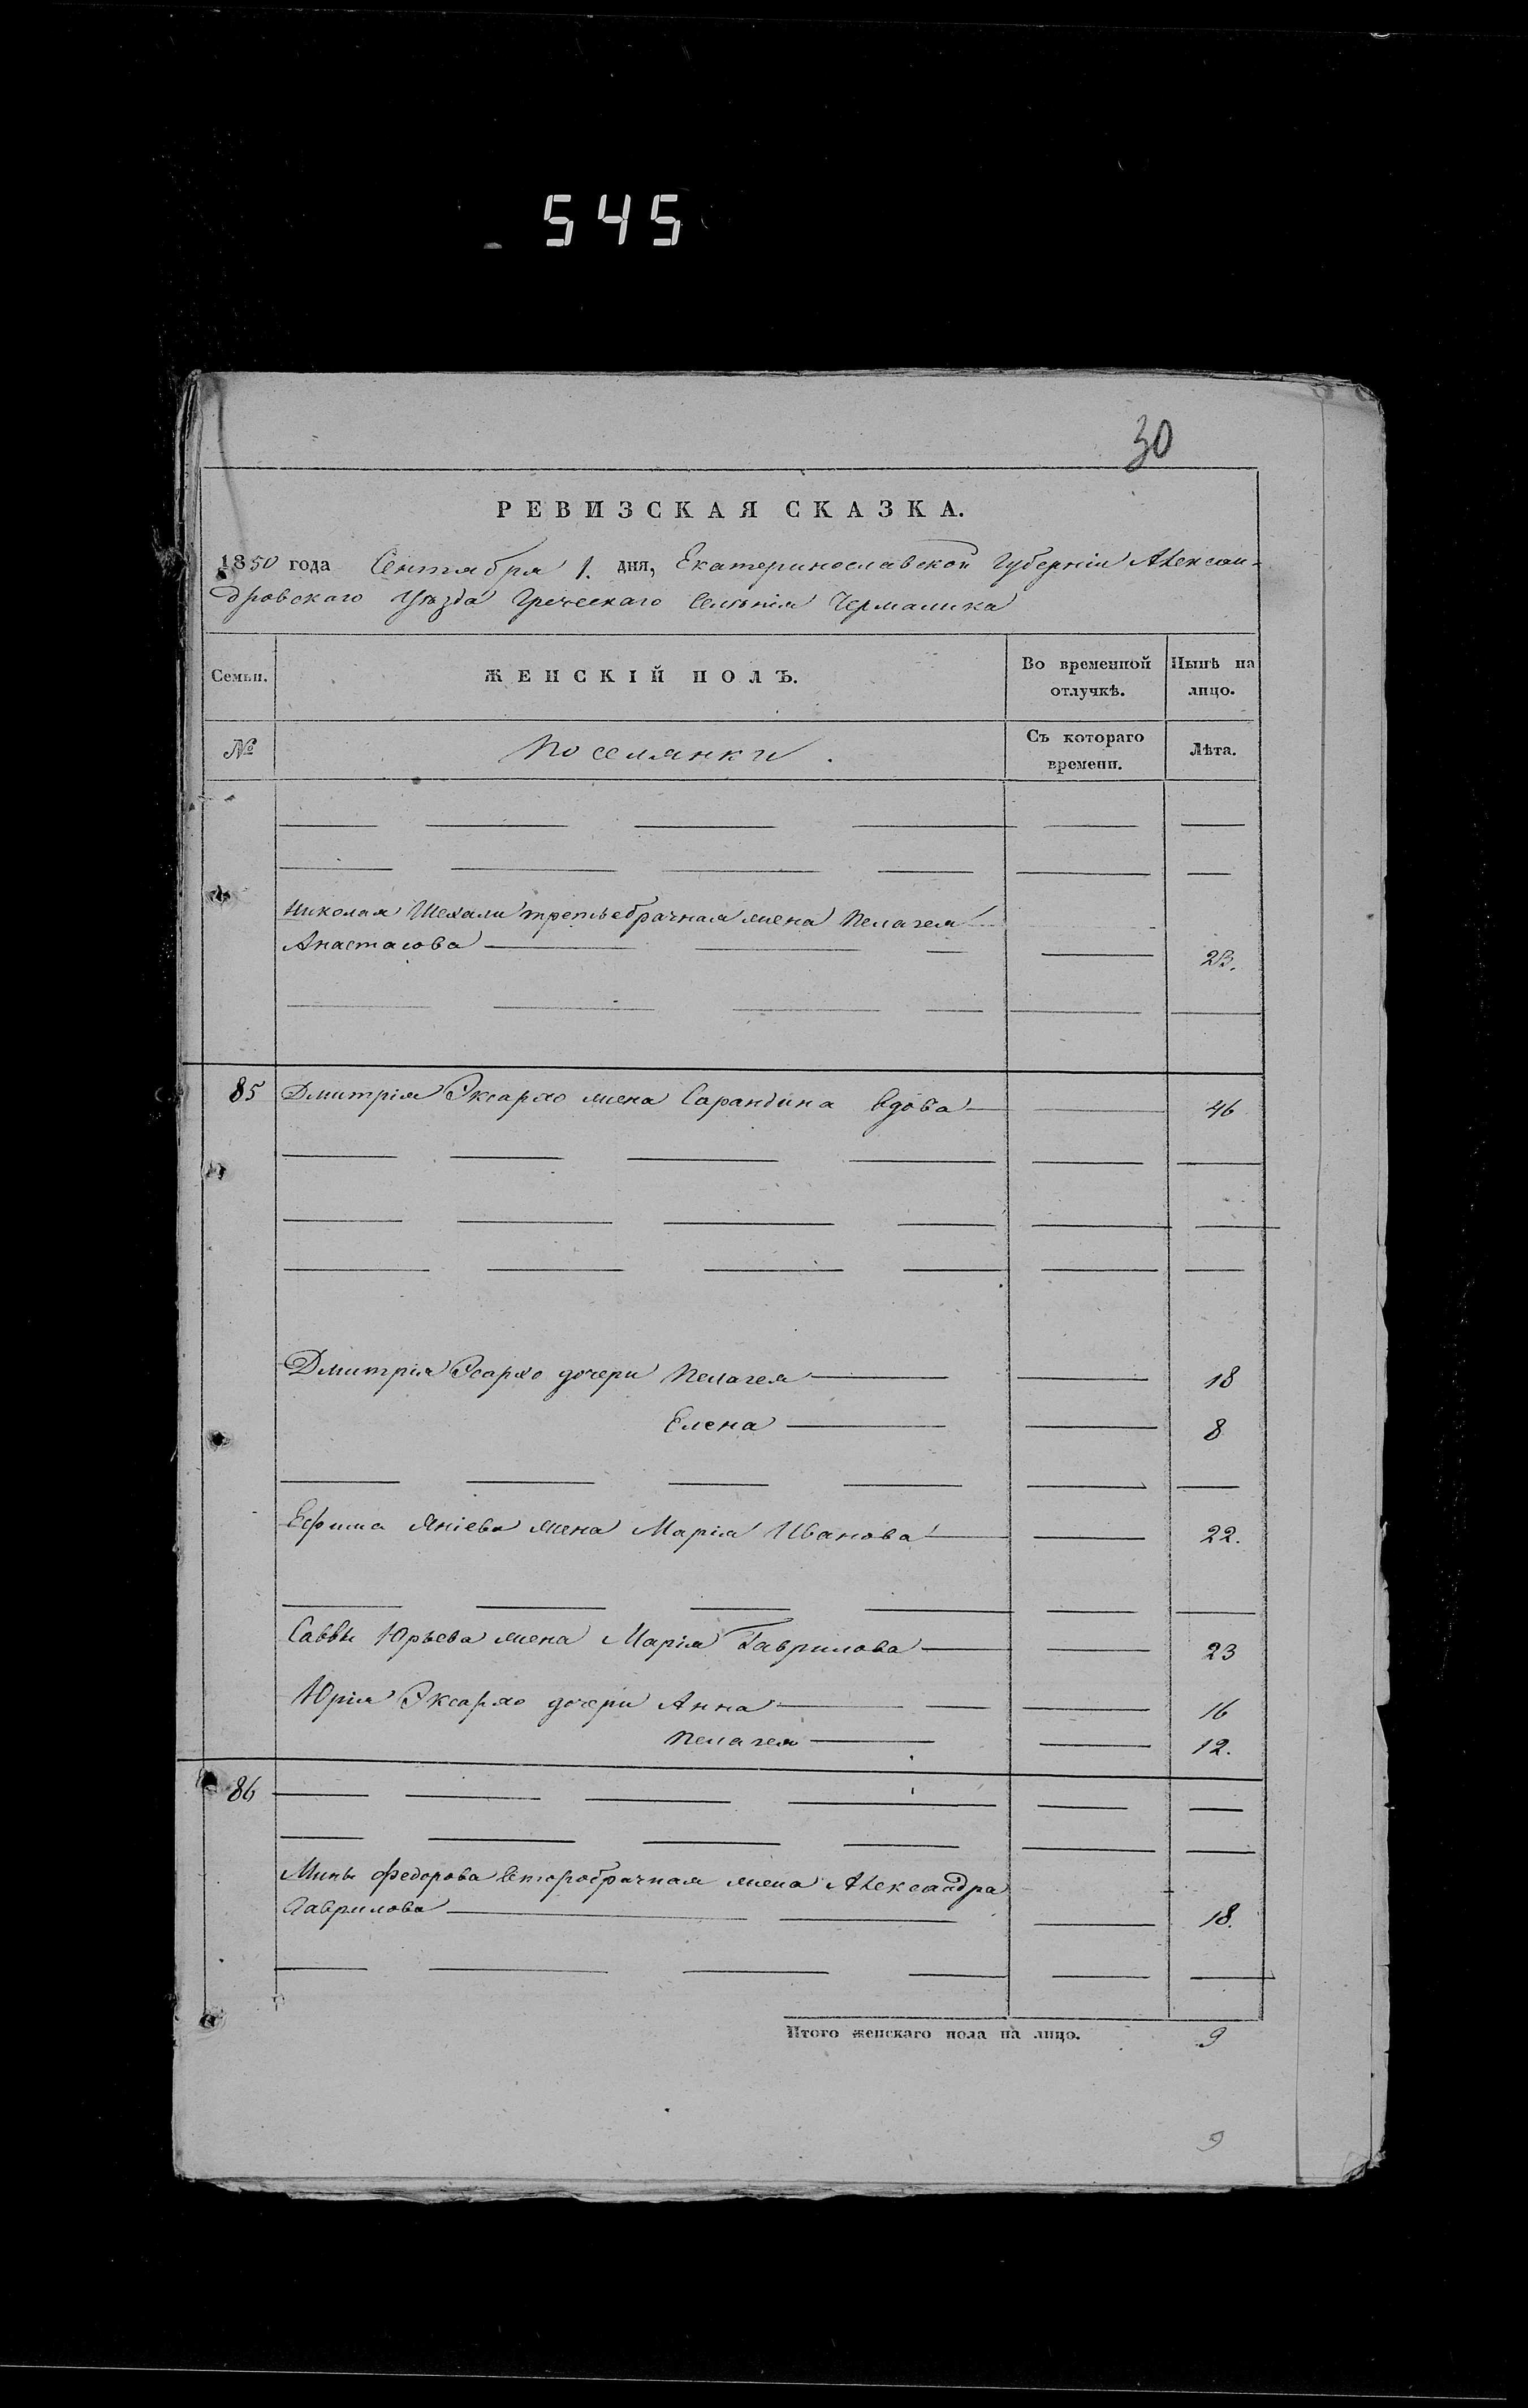 545
30
РЕВИЗСКАЯ СКАЗКА.
1850 года Сентября 1. дня, Екатеринославской Губерніи Алексан-
дровскаго Уѣзда Греческаго Селенія Чермалика
Семьи. ЖЕНСКІЙ ПОЛЪ. Во временной отлучкѣ. Нынѣ на лицо.
№ Поселянки. Съ котораго времени. Лѣта.
Николая третьебрачная жена Пелагея
Анастасова 23.
85 Дмитрія Эксархо жена Сарандина вдова 46
Дмитрія Эсархо дочери Пелагея 18
Елена 8
Ефима Яніева жена Марія Иванова 22.
Саввы Юрьева жена Марія Гаврилова 23
Юрія Эксархо дочери Анна 16
Пелагея 12.
86
Мины Федорова второбрачная жена Александра
Гаврилова 18.
Итого женскаго пола на лицо. 9
9